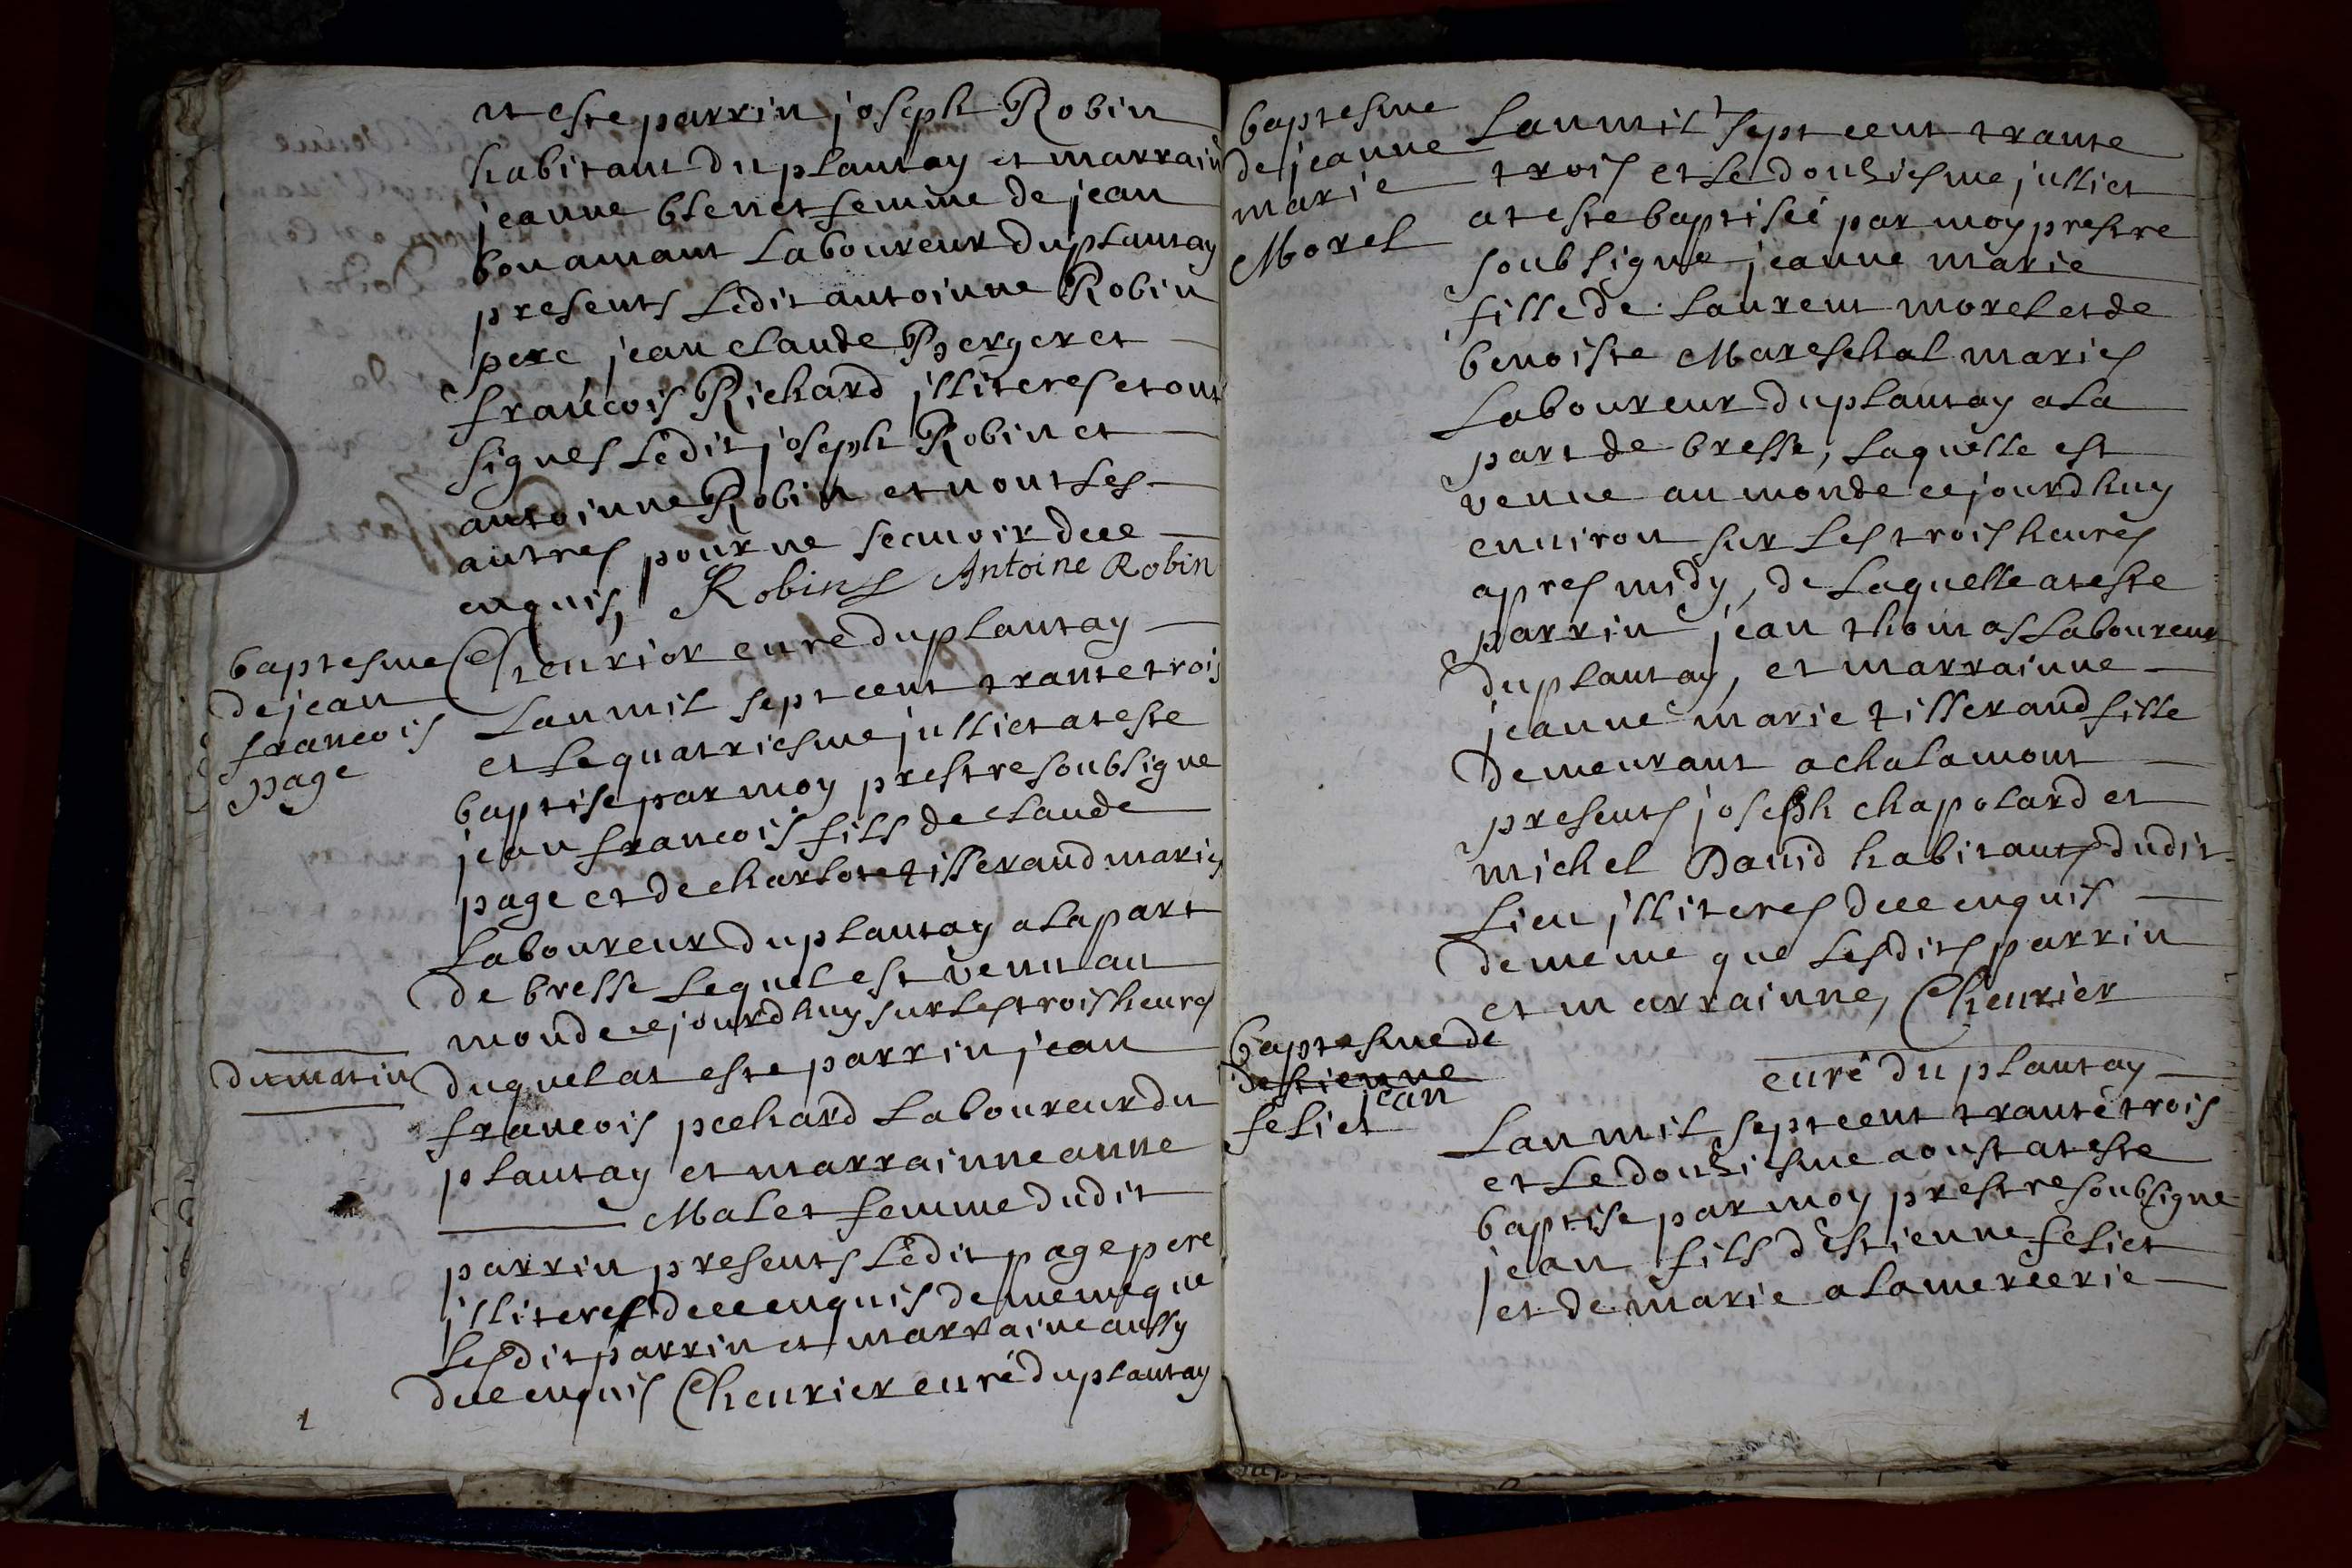 at este parrin joseph Robin
habitant du plantay et marrain
jeanne blenet femme de jean
bonamant laboureur du plantay
presents ledit antoinne Robin
pere jean claude Berger et
francois Richard illiteres et ont
signes ledit joseph Robin et
antoinne Robin et non les
autres pour ne scauoir dece
enquis, Robin Antoine Robin
Cheurier curé du plantay
baptesme
de jean
francois
page
Lan mil sept cent trante trois
et le quatriesme julliet at este
baptise par moy prestre soubsigne
jean francois fils de claude
page et de charlote tisserand maries
laboureur du plantay a la part
de bresse lequel est venu au
monde ce jourdhuy sur les trois heures
du matin
duquel at este parrin jean
francois pechard laboureur du
plantay et marrainne anne
Malet femme dudit
parrin presents ledit page pere
illiteres dece enquis de meme que
lesdit parrin et marraine aussy
dece enquis Cheurier curé du plantay
1
baptesme
de jeanne
marie
Morel
Lan mil sept cent trante
trois et le douziesme julliet
at este baptiseé par moy prestre
soubsigne jeanne marie
fille de laurent morel et de
benoiste Mareschal maries
laboureur du plantay a la
part de bresse, laquelle est
venue au monde ce jourdhuy
enuiron sur les trois heures
apres midy, de laquelle at este
parrin jean thomas laboureur
du plantay, et marrainne
jeanne marie tisserand fille
demeurant a chalamont
presents joseph chapolard et
michel Dauid habitants dudit
lieu illiteres dece enquis
de meme que lesdits parrin
et marrainne, Cheurier
curé du plantay
baptesme de
destienne
jean
feliet
Lan mil sept cent trante trois
et le douziesme aoust at este
baptise par moy prestre soubsigne
jean fils destienne feliet
et de marie alamercerie